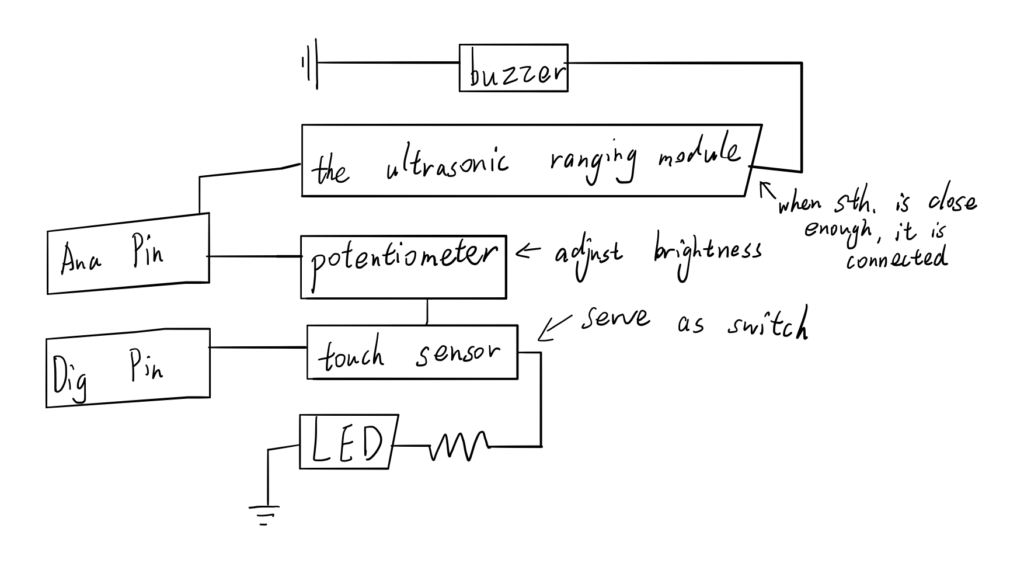 buzzer
the ultrasonic ranging module
when sth. is close
enough, it is
connected
Ana Pin
potentiometer
adjust brightness
serve as switch
Dig Pin
touch sensor
LED